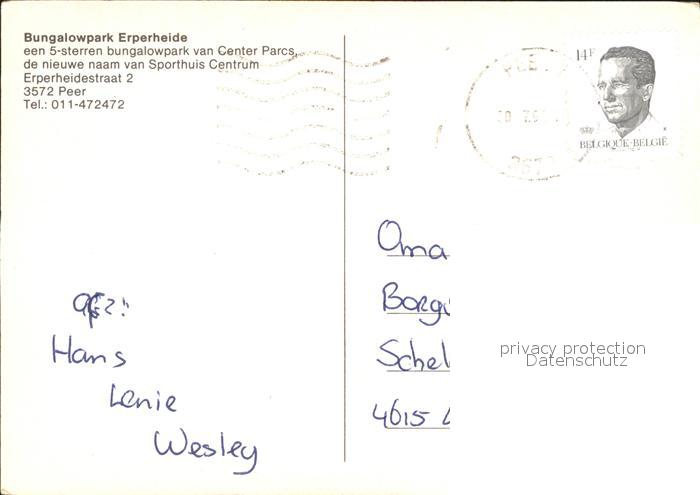 Bungalowpark Erperheide
een 5-sterren bungalowpark van Center Parcs,
de nieuwe naam van Sporthuis Centrum
Erperheidestraat 2
3572 Peer
Tel.: 011-472472
14F
BELGIQUE-BELGIË
afz:
Hans
Lenie
Wesley
Oma
Schel
4615
privacy protection
Datenschutz